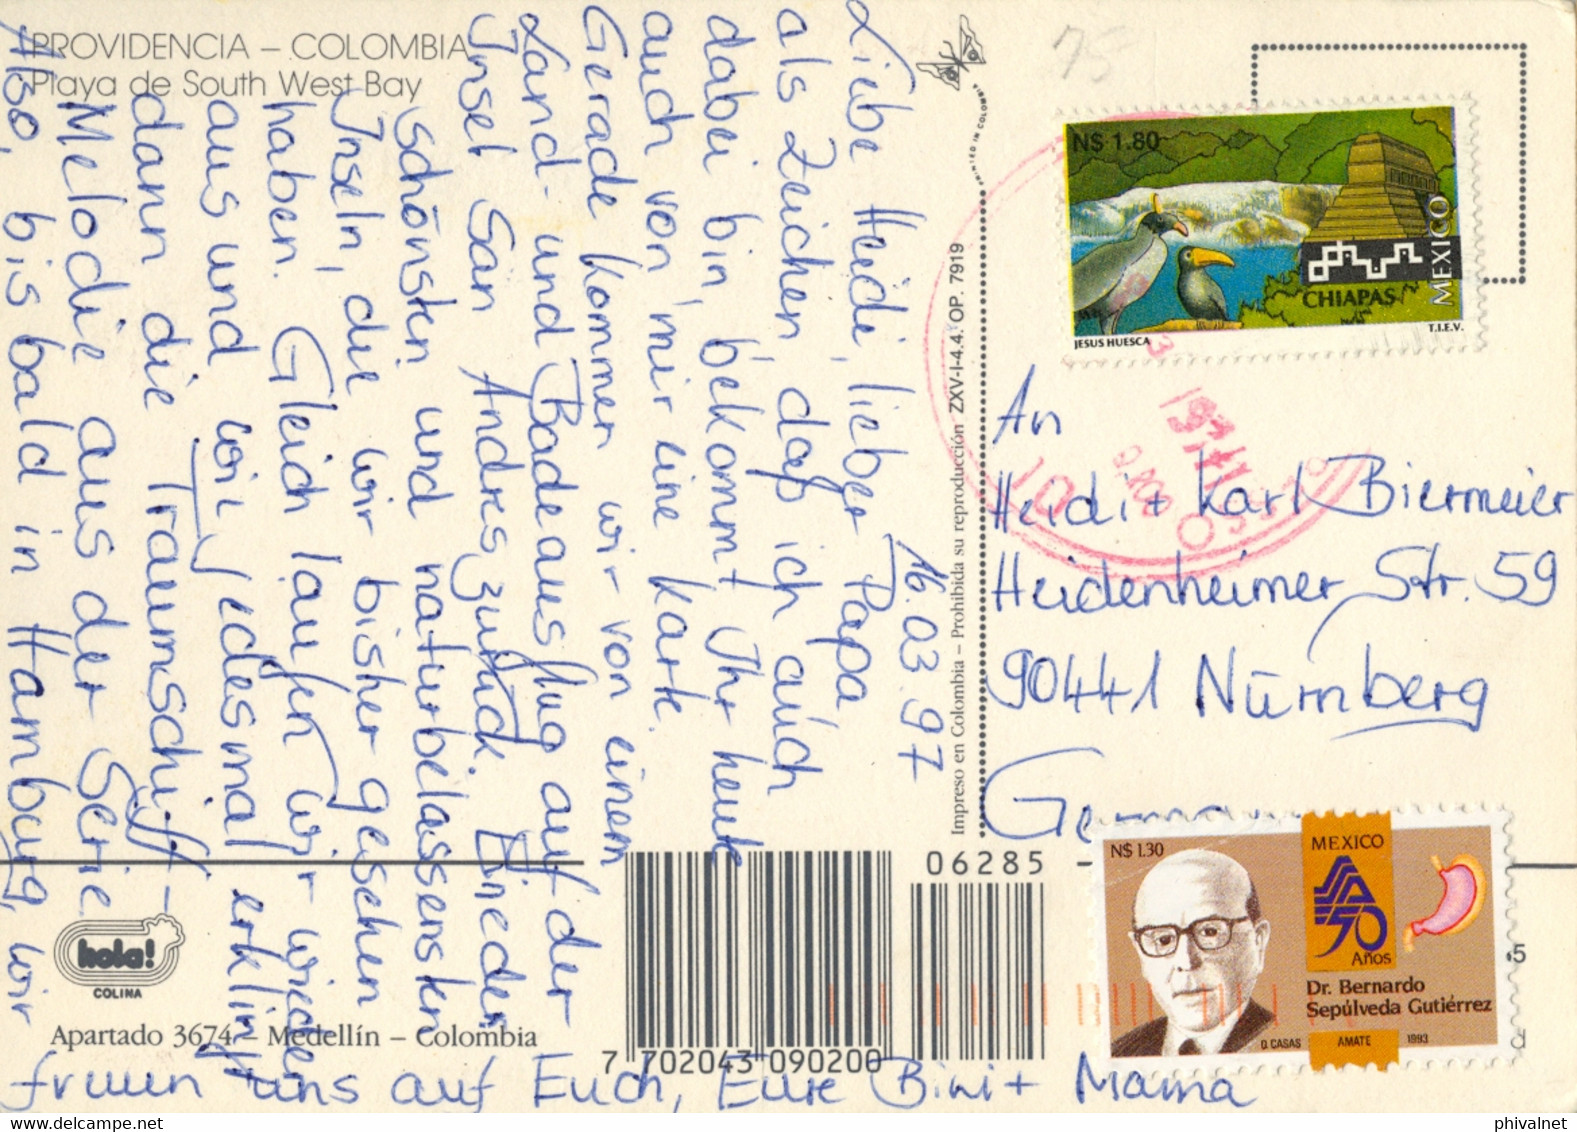 PROVIDENCIA – COLOMBIA
Playa de South West Bay
16.03.97
Liebe Heidi, lieber Papa
als Zeichen, daß ich auch
dabei bin, bekommt Ihr heute
auch von mir eine Karte.
Gerade kommen wir von einem
Land- und Badeausflug auf der
Insel San Andres zurück. Einer der
schönsten und naturbelassensten
Inseln, die wir bisher gesehen
haben. Gleich laufen wir wieder
aus und wie jedesmal erklingt
dann die Traumschiff-
Melodie aus der Serie.
Also, bis bald in Hamburg, wir
freuen uns auf Euch, Eure Bini + Mama
hola!
COLINA
Apartado 3674 – Medellín – Colombia
PRINTED IN COLOMBIA
Impreso en Colombia – Prohibida su reproducción ZXV-I-4.4. OP. 7919
75
N$ 1.80
CHIAPAS
MEXICO
JESUS HUESCA
T.I.E.V.
An
Heidi + Karl Biermeier
Heidenheimer Str. 59
90441 Nürnberg
Germany
06285
7 702043 090200
N$ 1.30
MEXICO
50
Años
Dr. Bernardo
Sepúlveda Gutiérrez
O. CASAS
AMATE
1993
5
phivalnet